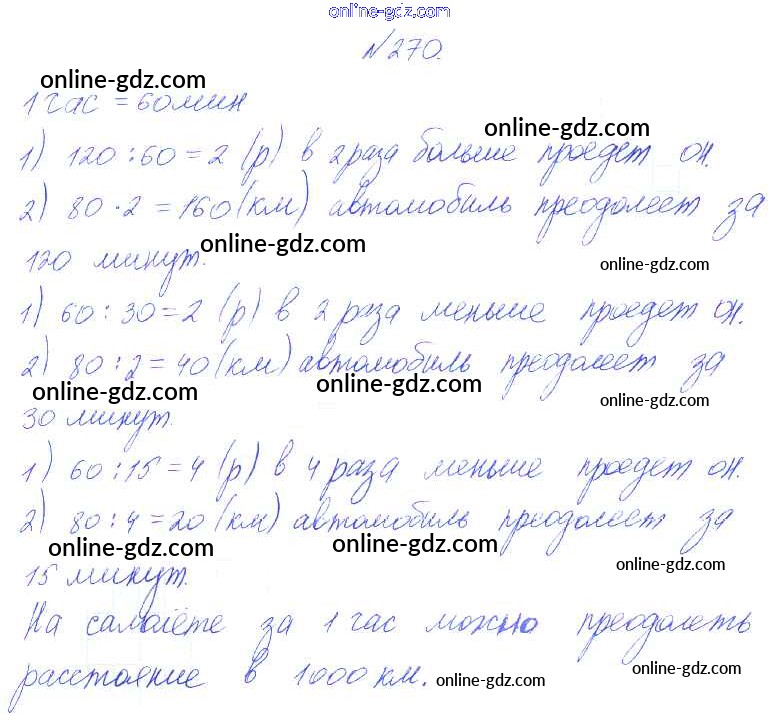 online-gdz.com
№270.
online-gdz.com
1 час = 60 мин
online-gdz.com
1) 120 : 60 = 2 (р) в 2 раза больше проедет он.
2) 80 · 2 = 160 (км) автомобиль преодолеет за
online-gdz.com
120 минут.
online-gdz.com
1) 60 : 30 = 2 (р) в 2 раза меньше проедет он.
2) 80 : 2 = 40 (км) автомобиль преодолеет за
online-gdz.com online-gdz.com online-gdz.com
30 минут.
1) 60 : 15 = 4 (р) в 4 раза меньше проедет он.
2) 80 : 4 = 20 (км) автомобиль преодолеет за
online-gdz.com online-gdz.com online-gdz.com
15 минут.
На самолёте за 1 час можно преодолеть
расстояние в 1000 км. online-gdz.com online-gdz.com